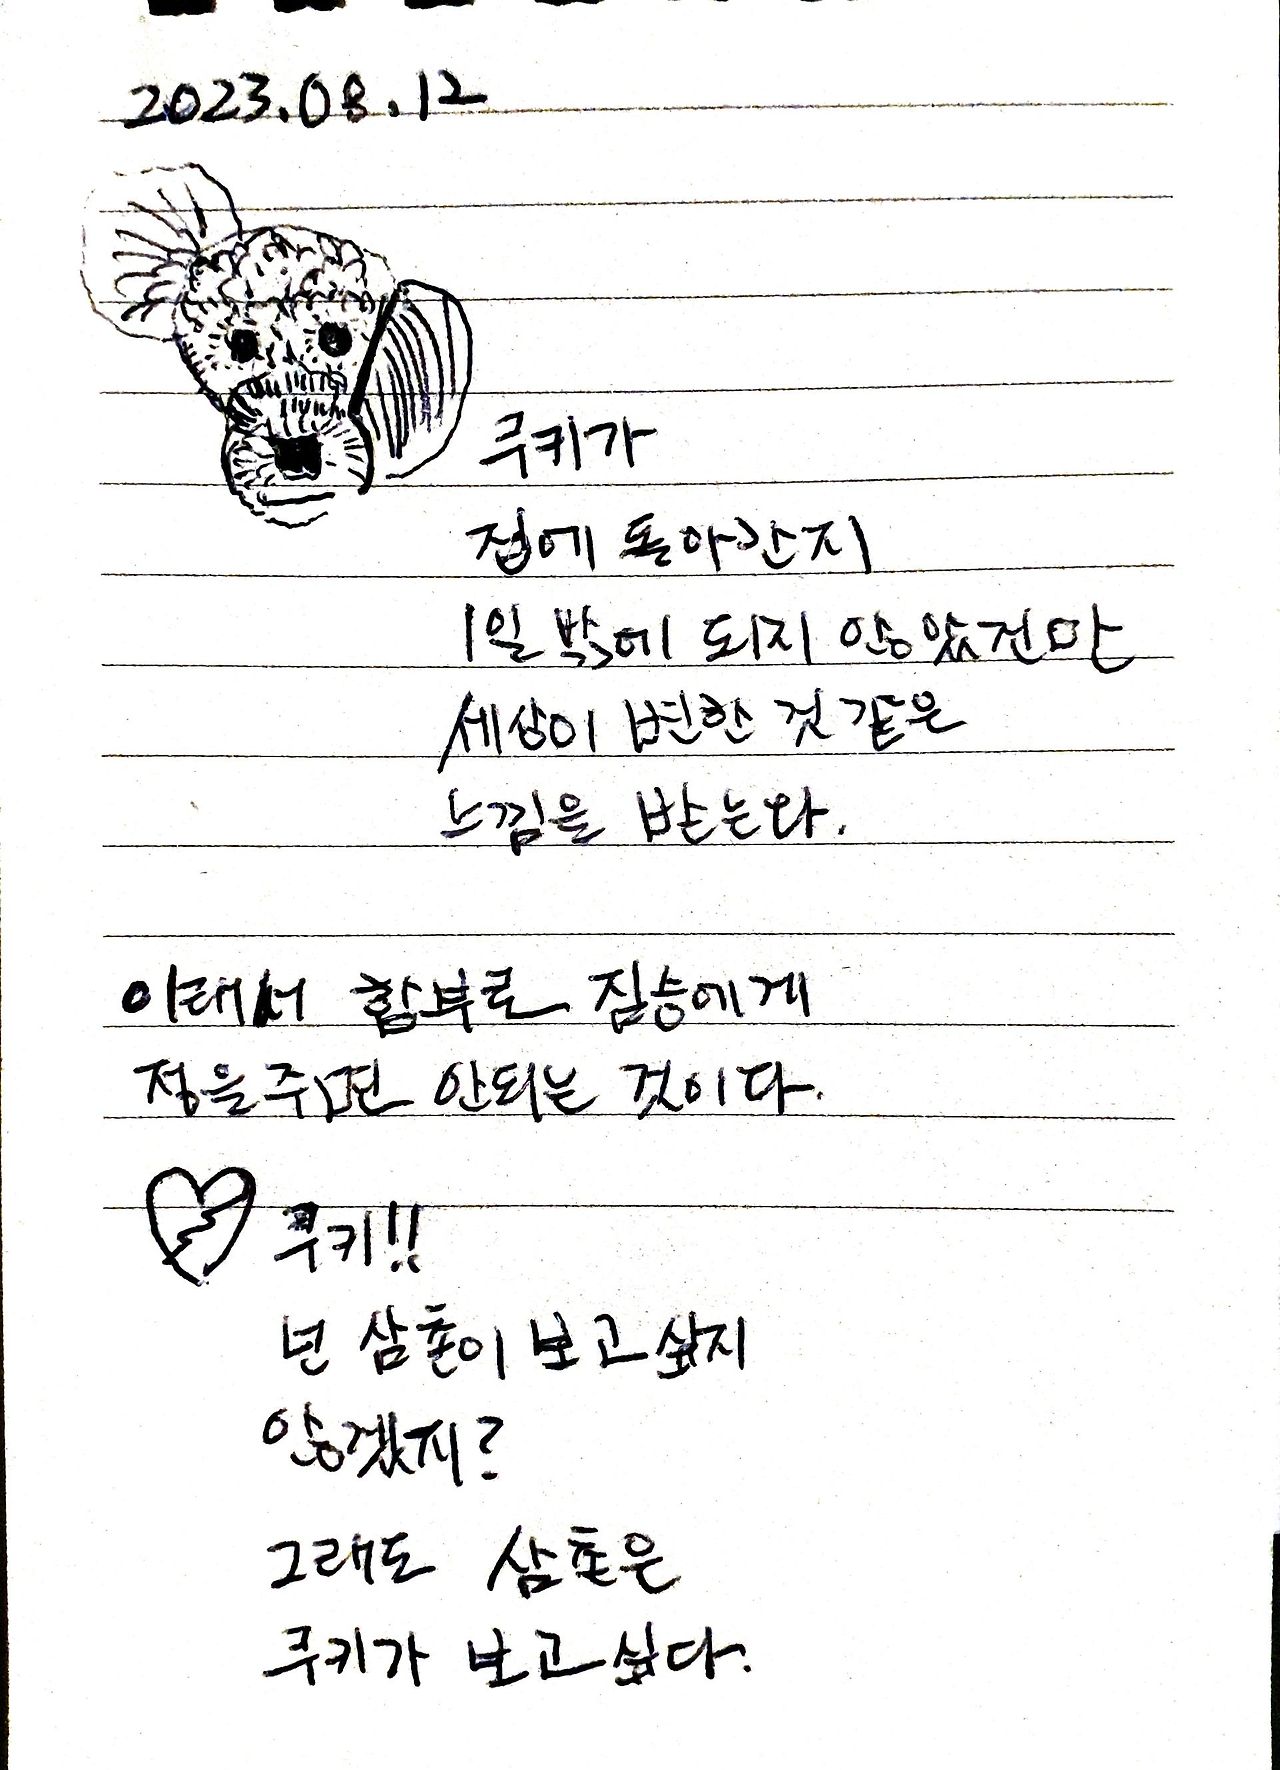 2023.08.12
루키가
집에 돌아간지
1일 밖에 되지 않았건만
세상이 변한 것 같은
느낌을 받는다.
이래서 함부로 짐승에게
정을주면 안되는 것이다.
루키!!
넌 삼촌이 보고싶지
않겠지?
그래도 삼촌은
루키가 보고싶다.